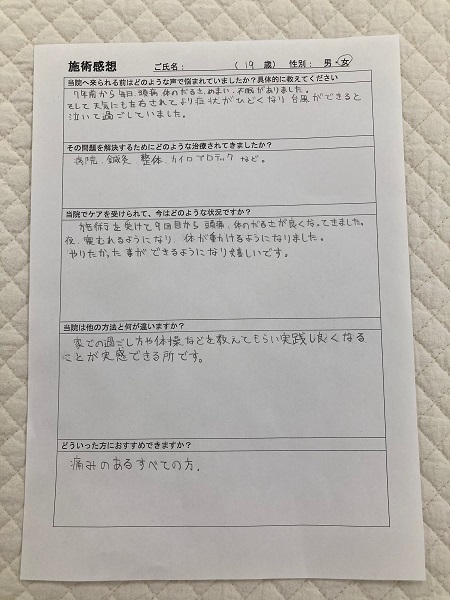 施術感想 ご氏名: (19 歳) 性別: 男・女
当院へ来られる前はどのような声で悩まれていましたか?具体的に教えてください
7年前から毎日、頭痛、体のだるさ、めまい、不眠がありました。
そして天気にも左右されてより症状がひどくなり台風ができると
泣いて過ごしていました。
その問題を解決するためにどのような治療されてきましたか?
病院、鍼灸、整体、カイロプロテックなど。
当院でケアを受けられて、今はどのような状況ですか?
施術を受けて9回目から頭痛、体のだるさが良くなってきました。
夜、寝むれるようになり、体が動けるようになりました。
やりたかった事ができるようになり嬉しいです。
当院は他の方法と何が違いますか?
家での過ごし方や体操などを教えてもらい実践し良くなる
ことが実感できる所です。
どういった方におすすめできますか?
痛みのあるすべての方。